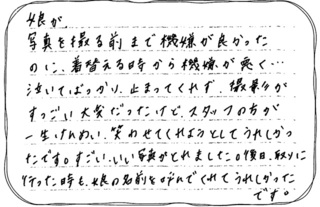 娘が
写真を撮る前まで機嫌が良かった
のに、着替える時から機嫌が悪く…
泣いてばっかり、止まってくれず、撮影が
すっごい大変だったけど、スタッフの方が
一生けんめい、笑わせてくれようとしてうれしかっ
たです。すごい、いい写真がとれました。後日、取りに
行った時も、娘の名前を呼んでくれてうれしかった
です。